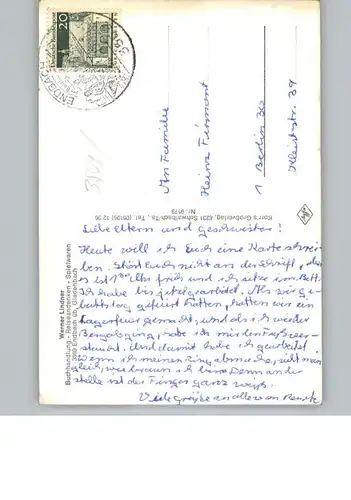 20
Deutsche Bundespost
ENDBACH
An Familie
Heinz Firmont
1 Berlin 30
Kleiststr. 39
Karl F. Großverlag, 6231 Schwalbach/Ts., Tel. (06196) 12 36
Nr. 9179
Werner Lindner
Buchhandlung - Reiseandenken - Spielwaren
3569 Endbach üb. Gladenbach
Liebe Eltern und Geschwister!
Heute will ich Euch eine Karte schrei-
ben. Stört Euch nicht an der Schrift, denn
es ist 1 Uhr früh und ich sitze im Bett.
Ich habe bis jetzt gearbeitet. Als wir ge-
burtstag gefeiert hatten, hatten wir ein
Lagerfeuer gemacht, und als ich wieder
, habe ich mir den Fuß ver-
staucht. Und damit habe ich gearbeitet
Wenn ich meinen Ring abmache,
gleich, was braun ich bin. Denn an der
stelle ist der Finger ganz weiß.
Viele Grüße an alle von